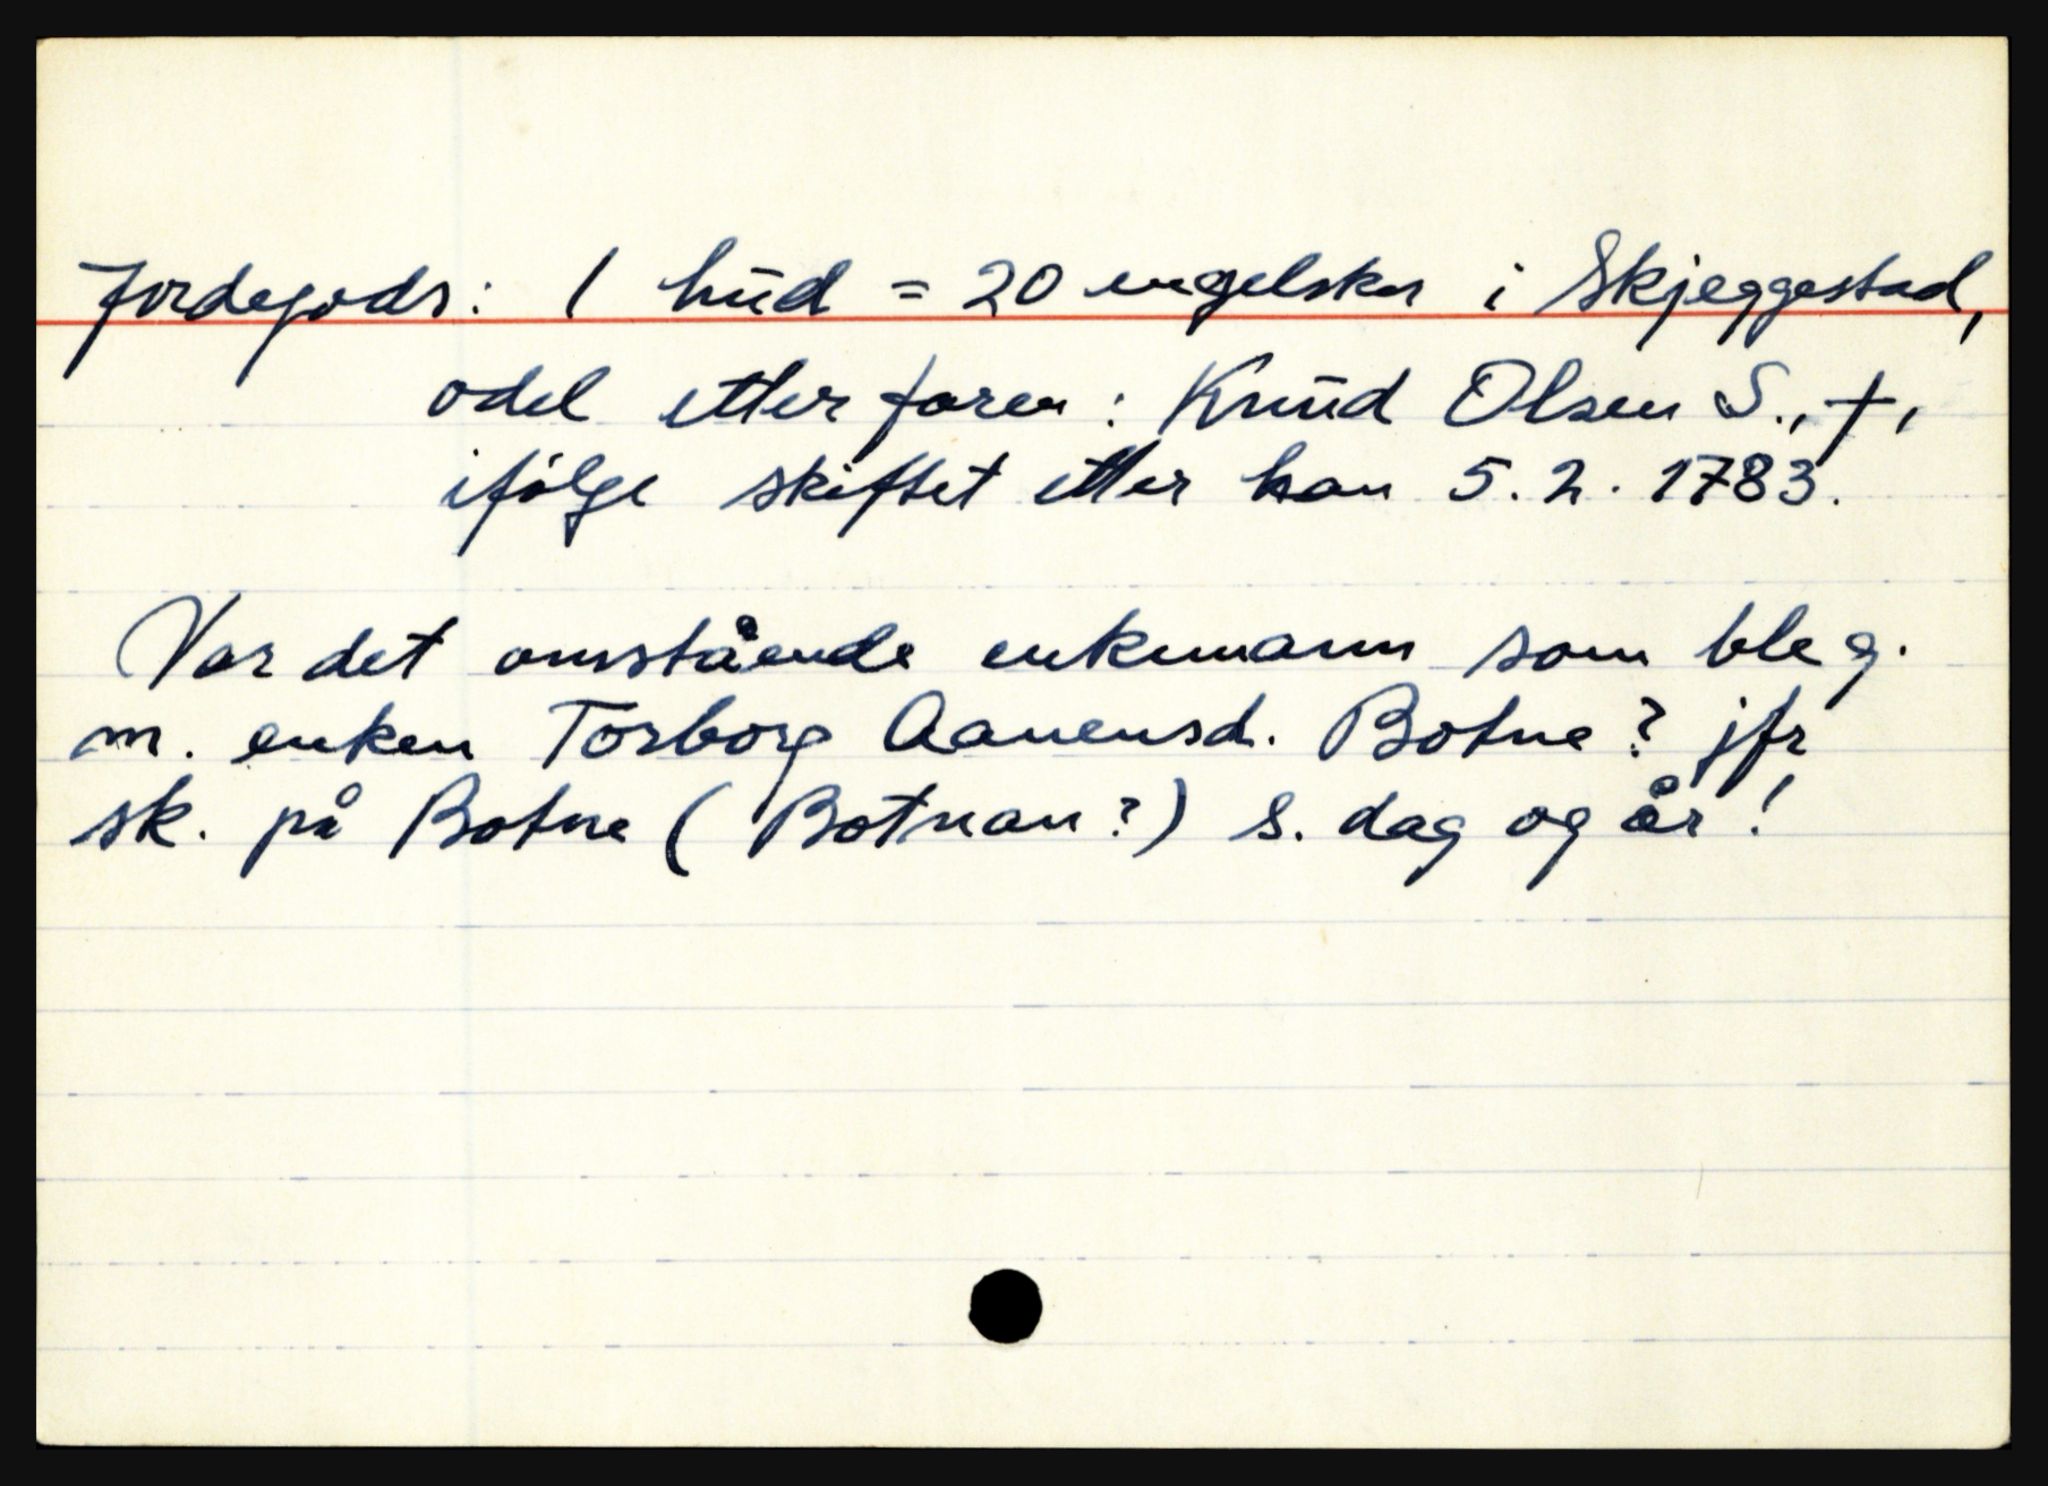 Jordegods: 1 hud = 20 engelsker i Skjeggestad,
odel etter faren: Knud Olsen S., †,
ifølge skiftet etter han 5.2.1783.
Var det omstående enkemann som ble g.
m. enken Torborg Aanensd. Botne? jfr
sk. på Botne (Botnan?) s. dag og år!